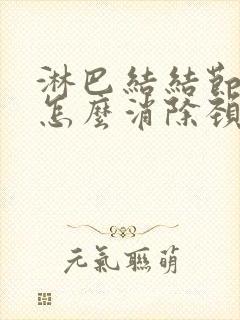 淋巴結結節
怎麼消除頸
元氣聯萌